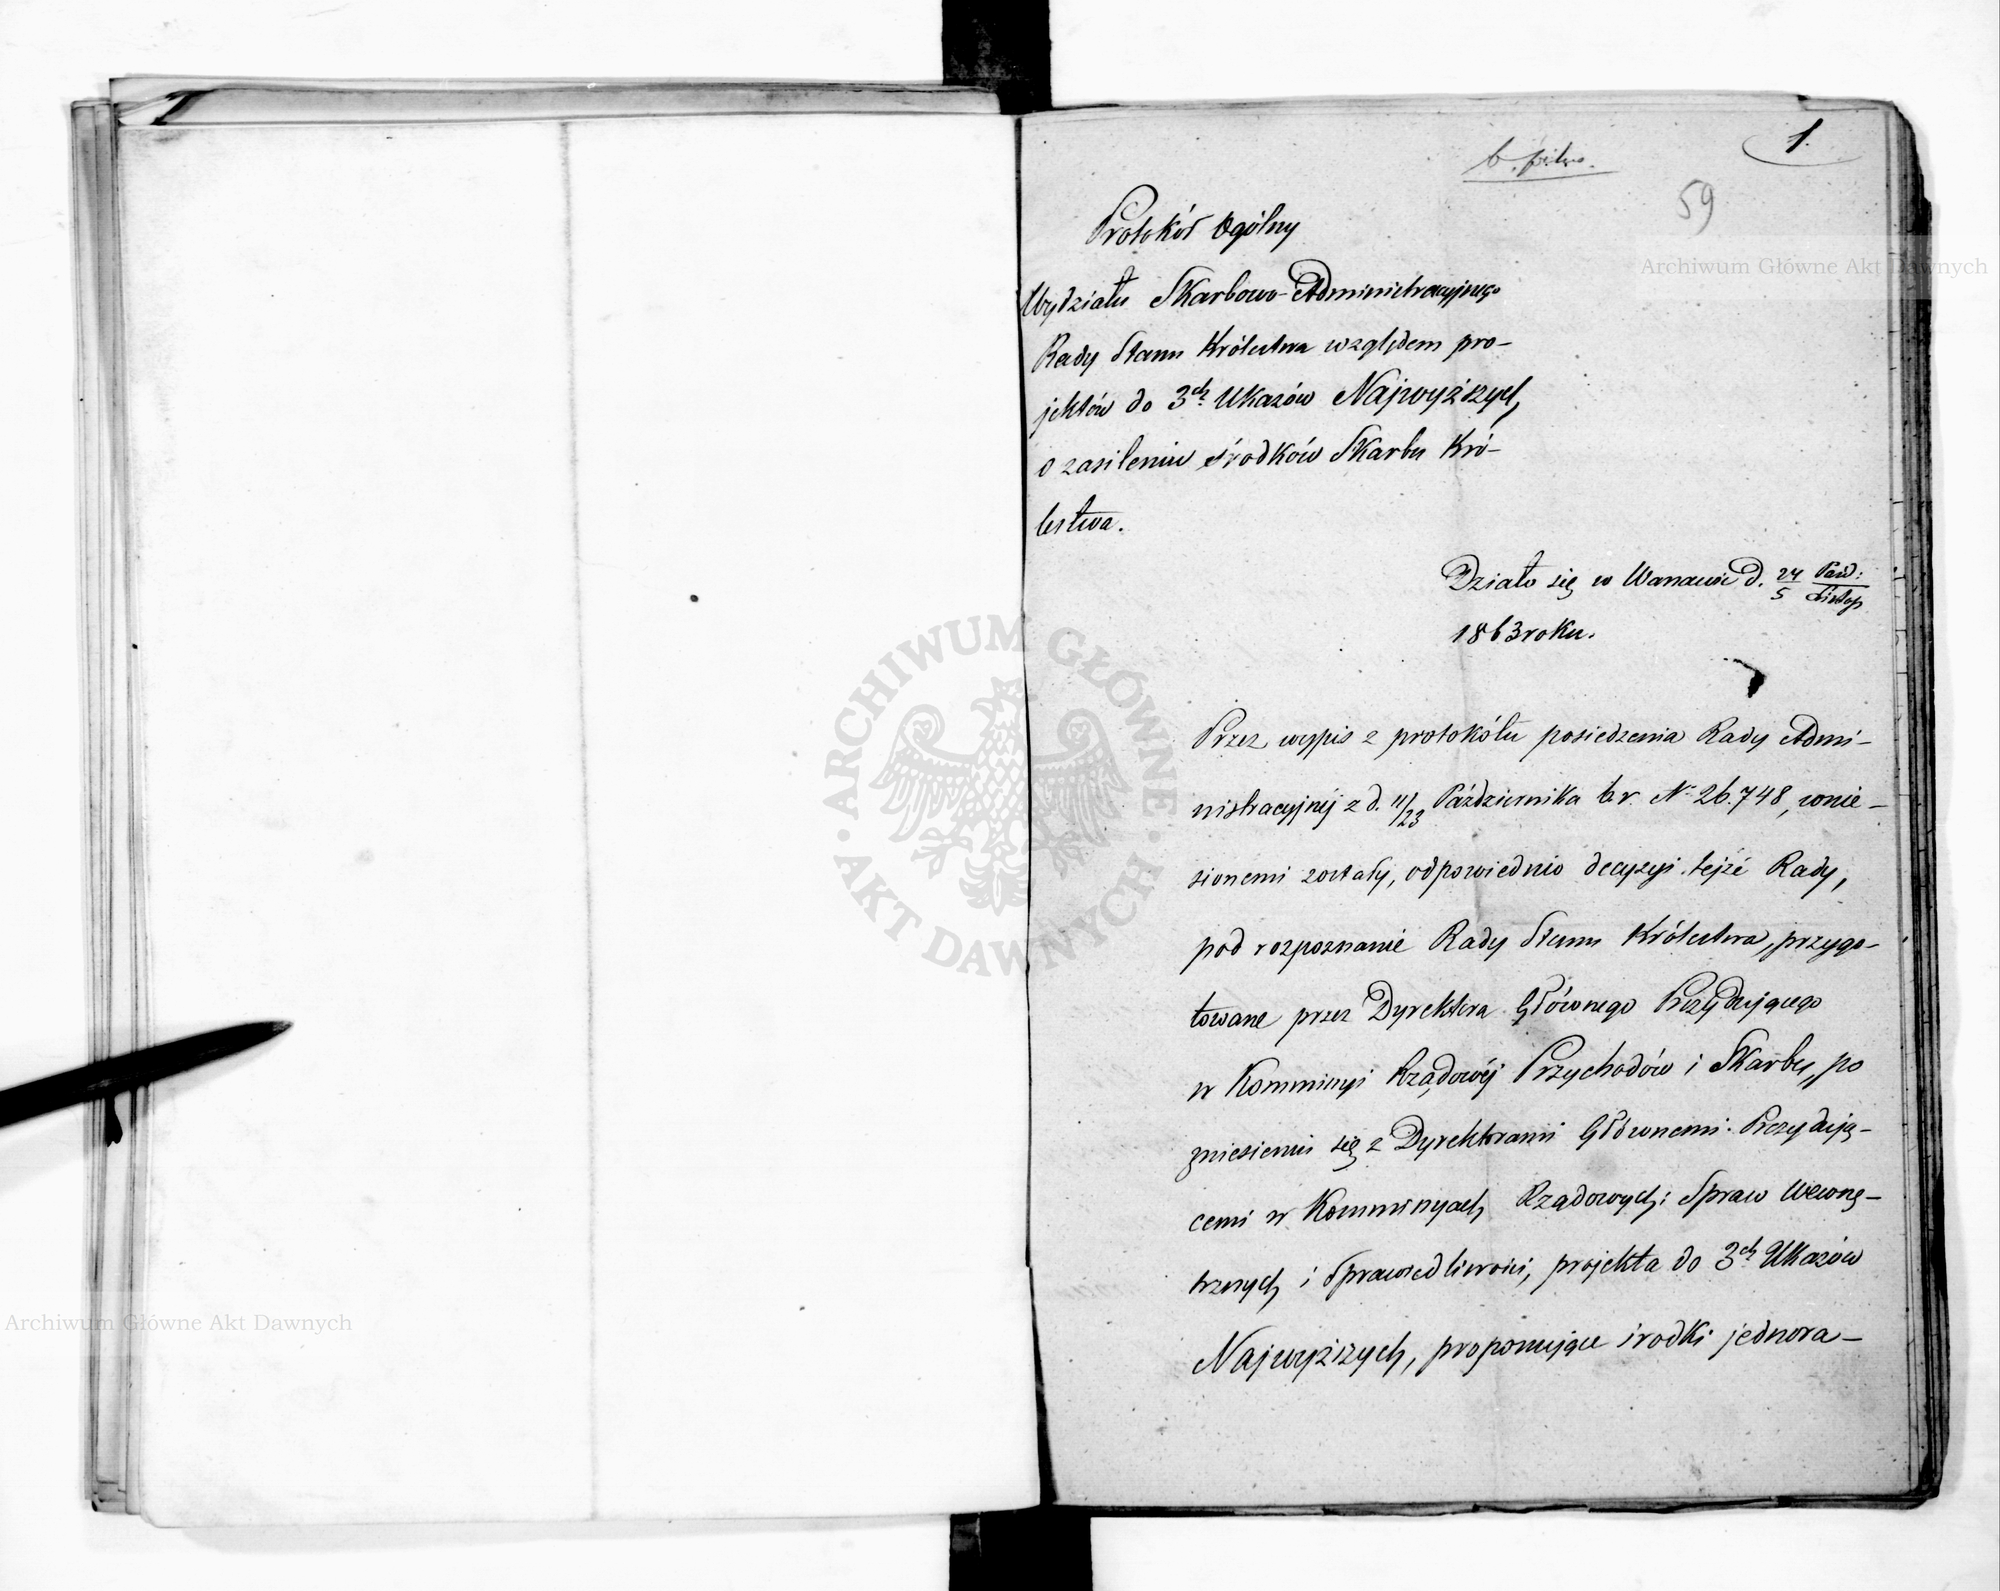 1.
b. pilno.
59
Protokół Ogólny
Wydziału Skarbowo-Administracyjnego
Rady Stanu Królestwa względem pro-
jektów do 3ch Ukazów Najwyższych,
o zasileniu środków Skarbu Kró-
lestwa.
Działo się w Warszawie d. 24/5 Paźd:/Listop
1863 roku.
Przez wypis z protokółu posiedzenia Rady Admi-
nistracyjnéj z d. 11/23 Października b.r. No 26.748, wnie-
sionemi zostały, odpowiednio decyzyi tejże Rady,
pod rozpoznanie Rady Stanu Królestwa, przygo-
towane przez Dyrektora Głównego Prezydującego
w Kommissyi Rządowéj Przychodów i Skarbu, po
zniesieniu się z Dyrektorami Głównemi Prezydują-
cemi w Kommissyach Rządowych: Spraw Wewnę-
trznych i Sprawiedliwości, projekta do 3ch Ukazów
Najwyższych, proponujące środki jednora-
Archiwum Główne Akt Dawnych
Archiwum Główne Akt Dawnych
ARCHIWUM GŁÓWNE · AKT DAWNYCH ·